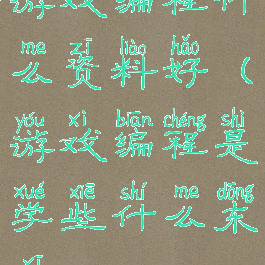 游戏编程什
me zī liào hǎo
么资料好（
yóu xì biān chéng shì
游戏编程是
xué xiē shí me dōng
学些什么东
xī